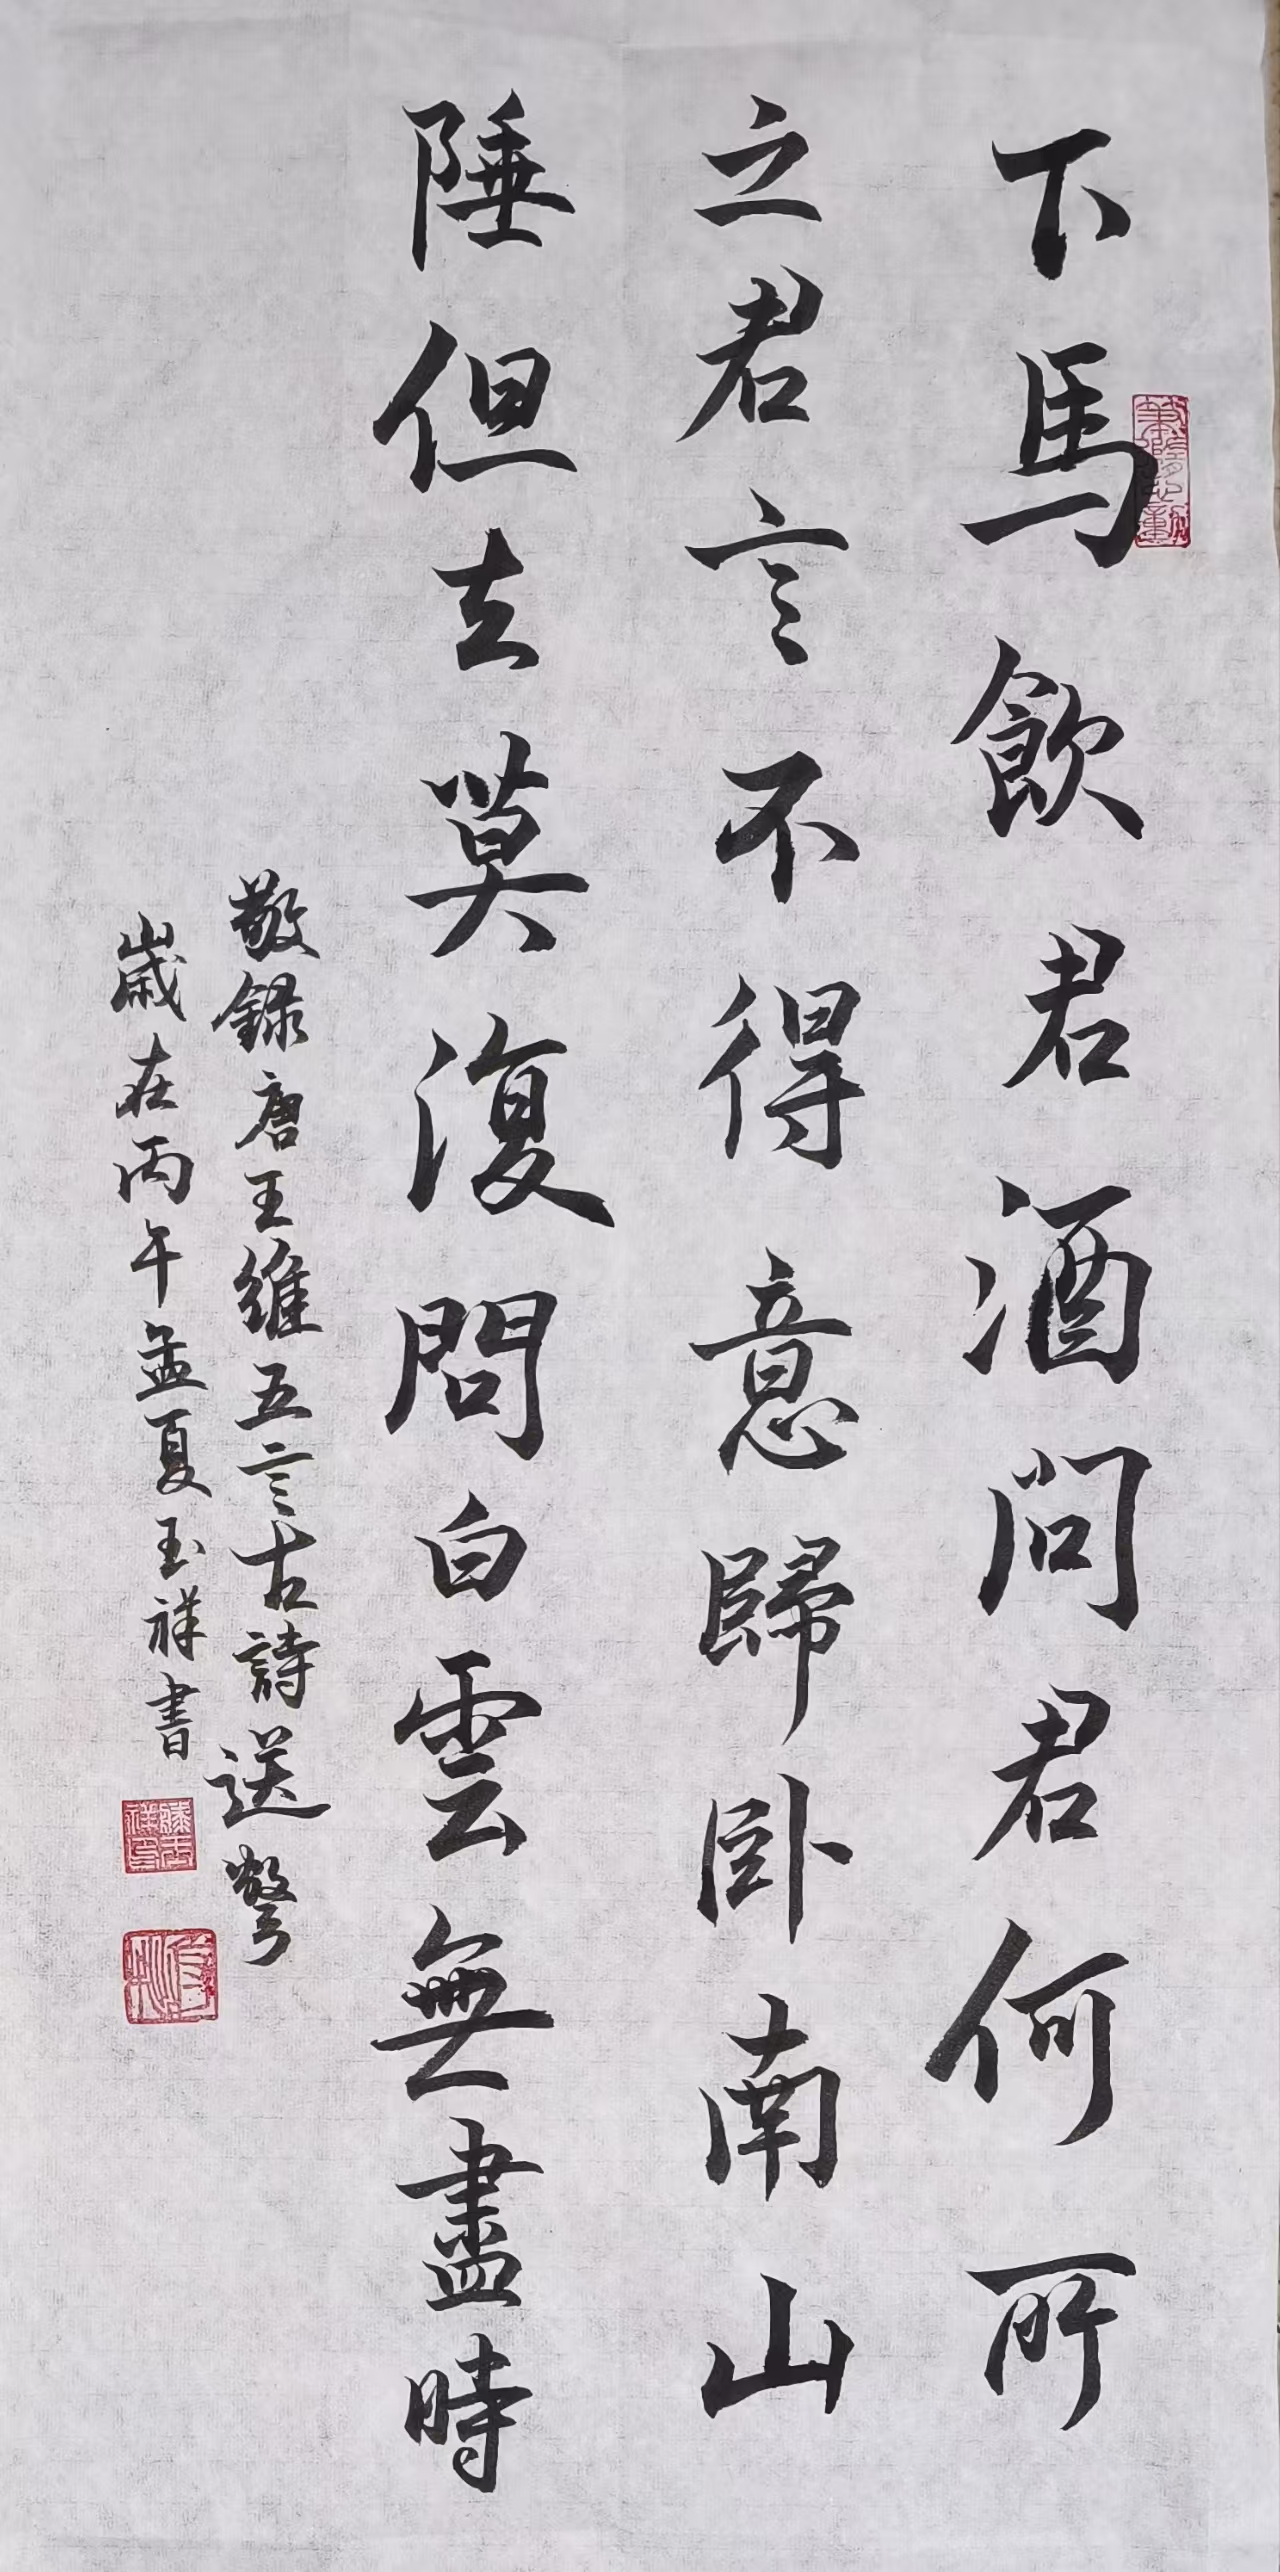 下馬飲君酒問君何所
之君言不得意歸卧南山
陲但去莫復問白雲無盡時
敬録唐王維五言古詩送弩
歲在丙午孟夏玉祥書